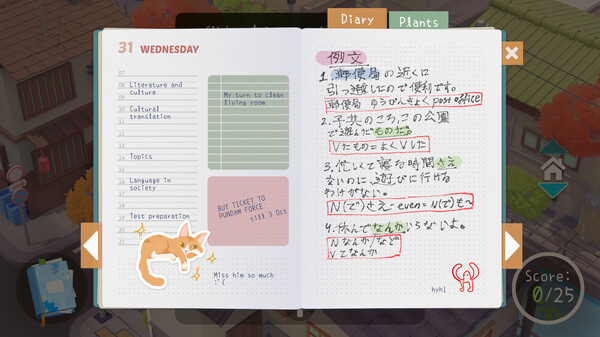 Diary
Plants
31 WEDNESDAY
07
08
Literature and
culture
10
Cultural
translation
Topics
Language in
society
Test preparation
20
21
My turn to clean
living room
BUY TICKET TO
PUNDAM FORCE
till 3 Oct
Miss him so much
:'(
例文
1. 郵便局の近くに
引っ越したので便利です。
郵便局 ゆうびんきょく post office
2. 子供のころ、この公園
で遊んだものだ。
Vたもの=よくVした
3. 忙しくて寝る時間さえ
ないのに、遊びに行ける
わけがない。
N(で)さえ - even = N(で)も~
4. 休んでなんかいらないよ。
Nなんか/など
Vてなんか
hyh!
Score:
0/25